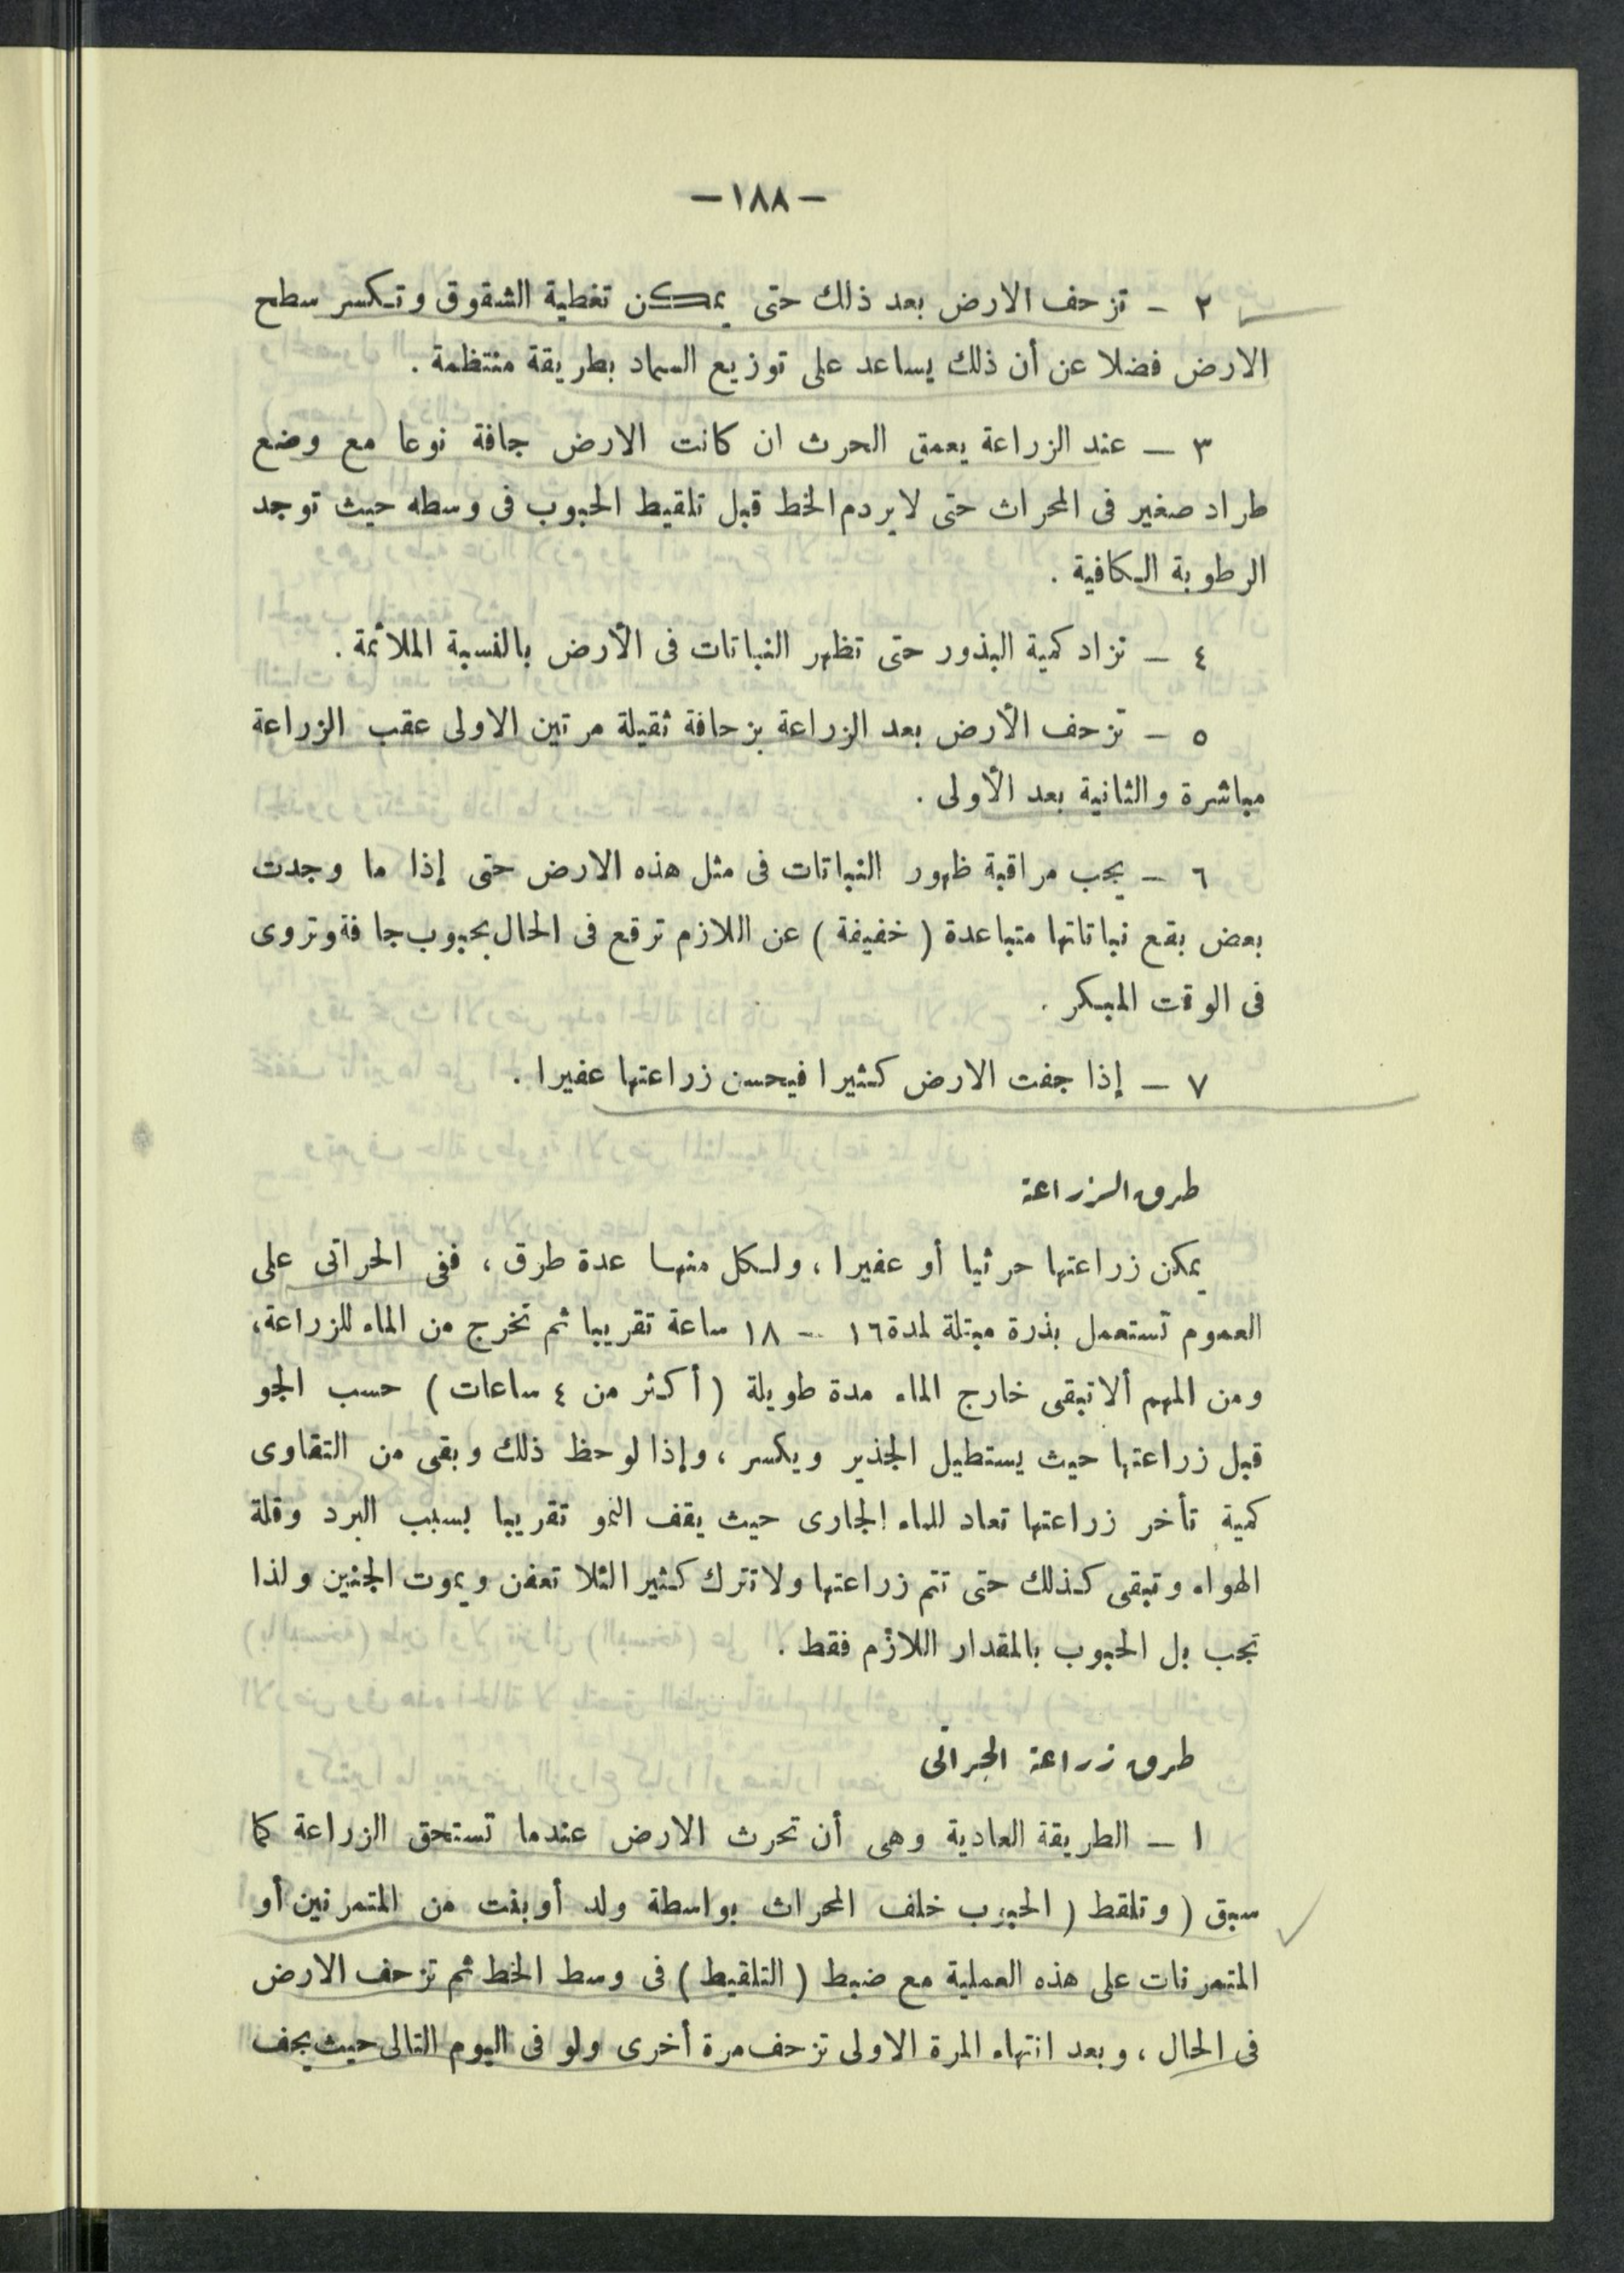 — ١٨٨ —
٢ — تزحف الارض بعد ذلك حتى يمكن تغطية الشقوق وتكسر سطح
الارض فضلا عن أن ذلك يساعد على توزيع السماد بطريقة منتظمة .
٣ — عند الزراعة يعمق الحرث ان كانت الارض جافة نوعا مع وضع
طراد صغير فى المحراث حتى لا يردم الخط قبل تلقيط الحبوب فى وسطه حيث توجد
الرطوبة الكافية .
٤ — تزاد كمية البذور حتى تظهر النباتات فى الأرض بالنسبة الملائمة .
٥ — تزحف الأرض بعد الزراعة بزحافة ثقيلة مرتين الاولى عقب الزراعة
مباشرة والثانية بعد الأولى .
٦ — يجب مراقبة ظهور النباتات فى مثل هذه الارض حتى إذا ما وجدت
بعض بقع نباتاتها متباعدة ( خفيفة ) عن اللازم ترقع فى الحال بحبوب جافة وتروى
فى الوقت المبكر .
٧ — إذا جفت الارض كثيرا فيحسن زراعتها عفيرا .
طرق الزراعة
يمكن زراعتها حرثيا أو عفيرا ، ولكل منها عدة طرق ، ففى الحراتى على
العموم تستعمل بذرة مبتلة لمدة ١٦ — ١٨ ساعة تقريبا ثم تخرج من الماء للزراعة،
ومن المهم ألا تبقى خارج الماء مدة طويلة ( أكثر من ٤ ساعات ) حسب الجو
قبل زراعتها حيث يستطيل الجذير ويكسر ، وإذا لوحظ ذلك وبقى من التقاوى
كمية تأخر زراعتها تعاد للماء الجارى حيث يقف النمو تقريبا بسبب البرد وقلة
الهواء وتبقى كذلك حتى تتم زراعتها ولا تترك كثيرا لئلا تعفن ويموت الجنين ولذا
تجب بل الحبوب بالمقدار اللازم فقط .
طرق زراعة الحراتى
١ — الطريقة العادية وهى أن تحرث الارض عندما تستحق الزراعة كما
سبق ( وتلقط ( الحبوب خلف المحراث بواسطة ولد أو بنت من المتمرنين أو
المتمرنات على هذه العملية مع ضبط ( التلقيط ) فى وسط الخط ثم تزحف الارض
فى الحال ، وبعد انتهاء المرة الاولى تزحف مرة أخرى ولو فى اليوم التالى حيث يجف